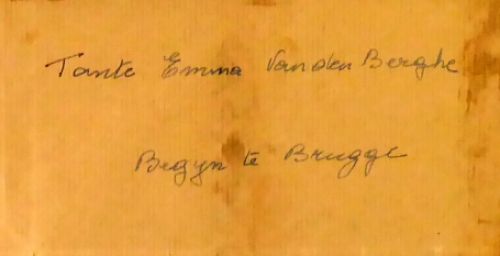 Tante Emma Vanden Berghe
Begyn te Brugge